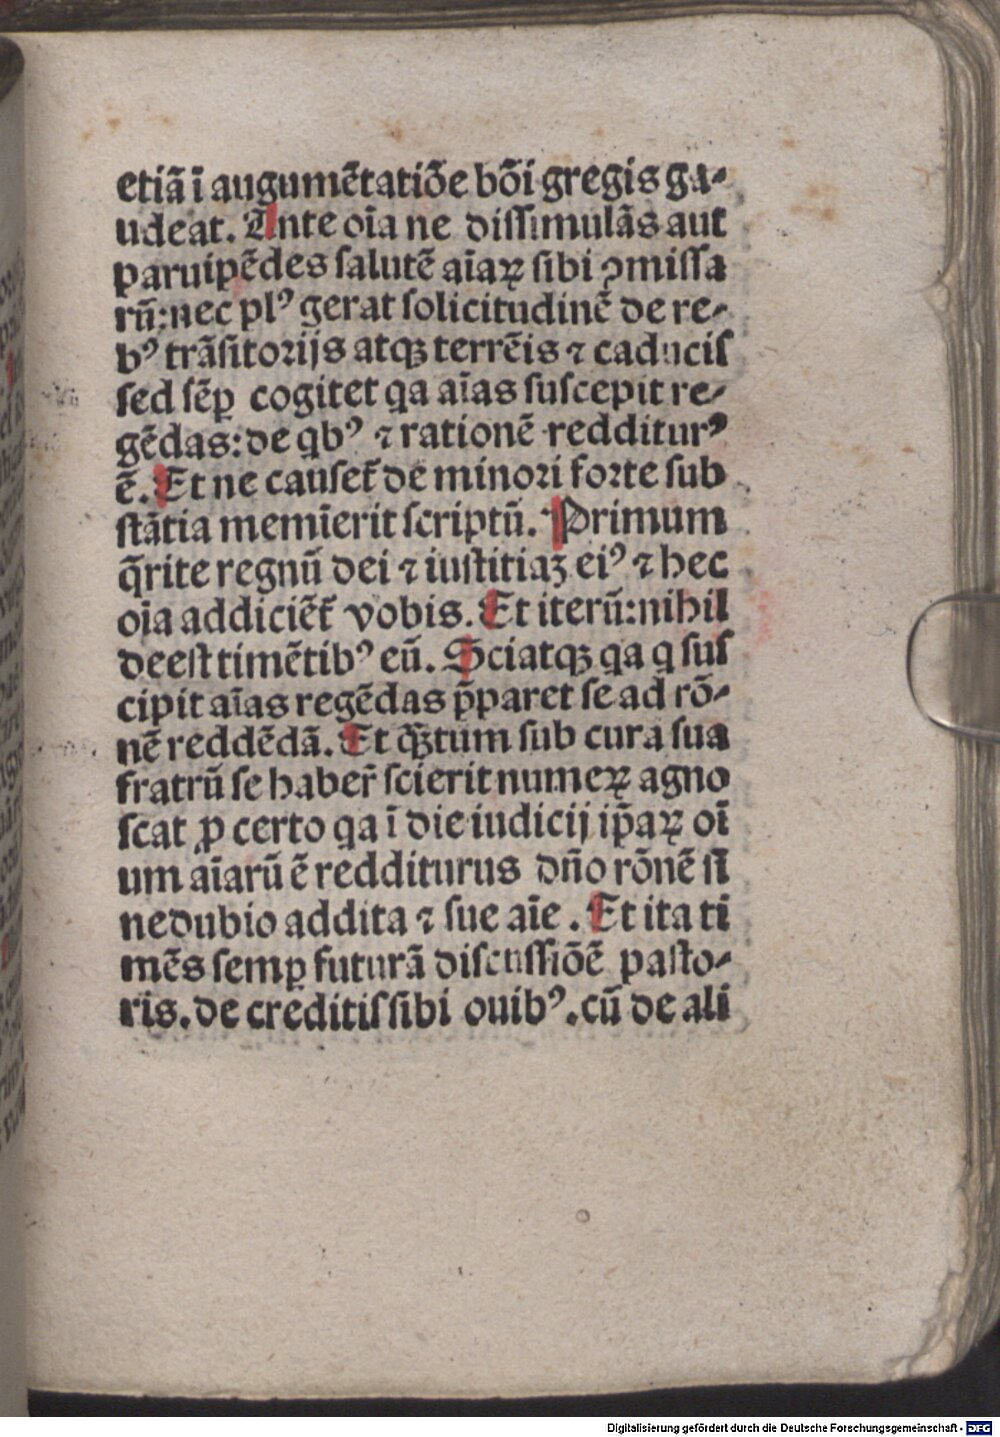 etiã ī augumẽtatiõe bõi gregis ga⸗
udeat. Ante oīa ne dissimulãs aut
paruipẽdes salutẽ aīaꝝ sibi ꝯmissa
rũ:nec plꝰ gerat solicitudinẽ de re⸗
bꝰ trãsitorijs atqꝫ terrẽis ⁊ caducis
sed sẽꝑ cogitet qa aīas suscepit re⸗
gẽdas: de qbꝰ ⁊ rationẽ redditurꝰ
ẽ. Et ne causet̃ de minori forte sub
stãtia memīerit scriptũ. Primum
q̃rite regnũ dei ⁊ iustitiaꝫ eiꝰ ⁊ hec
oīa addiciẽt̃ vobis. Et iterũ: nihil
deest timẽtibꝰ eũ. Sciatqꝫ qa q sus
cipit aīas regẽdas p̃paret se ad rõ⸗
nẽ reddẽdã. Et q̃ꝫtum sub cura sua
fratrũ se haber̃ scierit numeꝝ agno
scat ꝓ certo qa ī die iudicij ip̃aꝝ oī
um aīarũ ẽ redditurus dño rõnẽ sī
nedubio addita ⁊ sue aīe. Et ita ti
mẽs semꝑ futurã discussiõẽ pasto⸗
ris. de creditis sibi ouibꝰ. cũ de ali
Digitalisierung gefördert durch die Deutsche Forschungsgemeinschaft - DFG